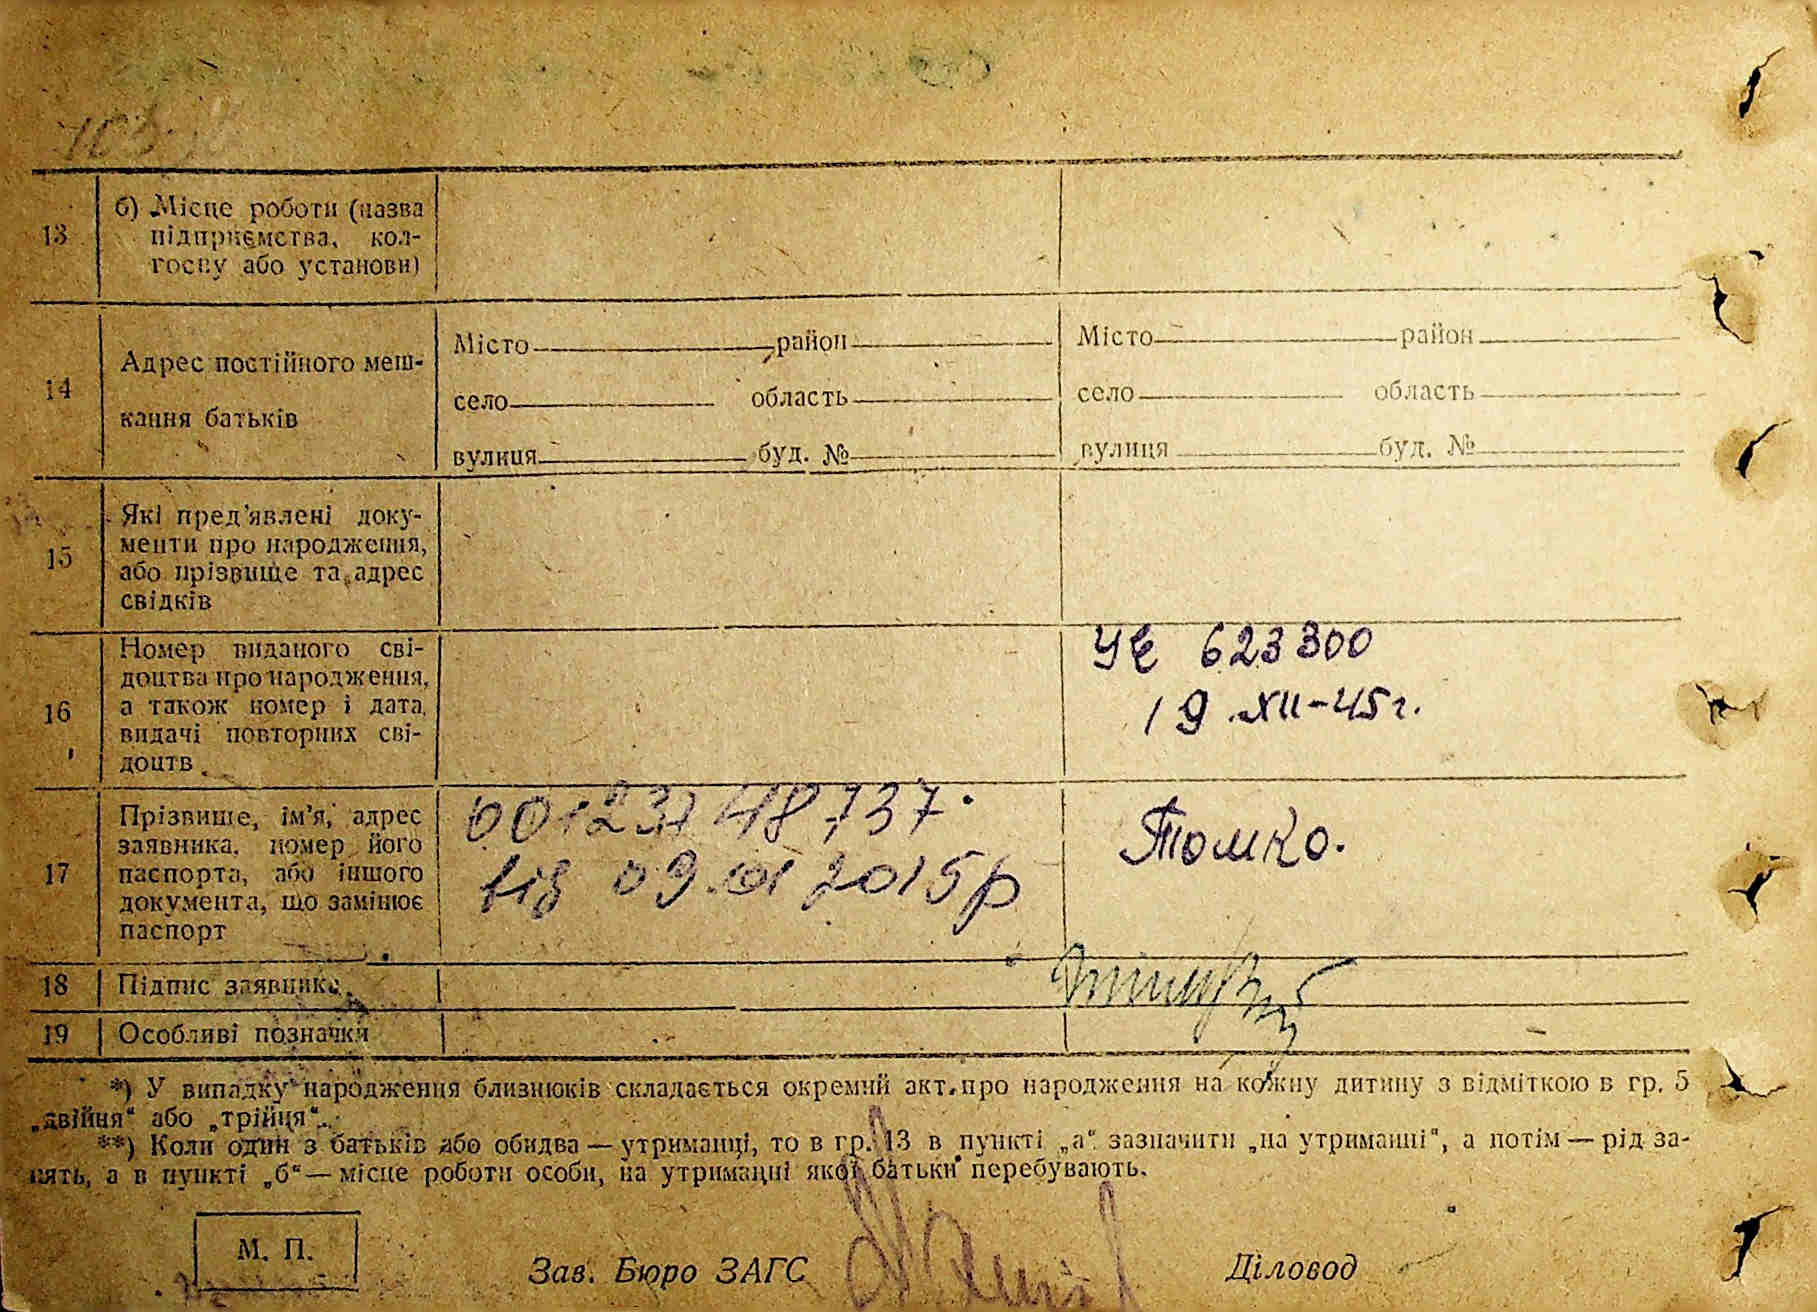 13
б) Місце роботи (назва
підприємства, кол-
госпу або установи)
14
Адрес постійного меш-
кання батьків
Місто район
село область
вулиця буд. №
Місто район
село область
вулиця буд. №
15
Які пред'явлені доку-
менти про народження,
або прізвище та адрес
свідків
16
Номер виданого сві-
доцтва про народження,
а також номер і дата
видачі повторних сві-
доцтв
УЄ 623300
19 XII-45 г.
17
Прізвище, ім'я, адрес
заявника, номер його
паспорта, або іншого
документа, що замінює
паспорт
48737
від 09.01 2015р
Томко.
18
Підпис заявника
19
Особливі позначки
*) У випадку народження близнюків складається окремий акт про народження на кожну дитину з відміткою в гр. 5
„двійня“ або „трійця“.
**) Коли один з батьків або обидва — утриманці, то в гр. 13 в пункті „а“ зазначити „на утриманні“, а потім — рід за-
нять, а в пункті „б“ — місце роботи особи, на утриманні якої батьки перебувають.
М. П.
Зав. Бюро ЗАГС
Діловод